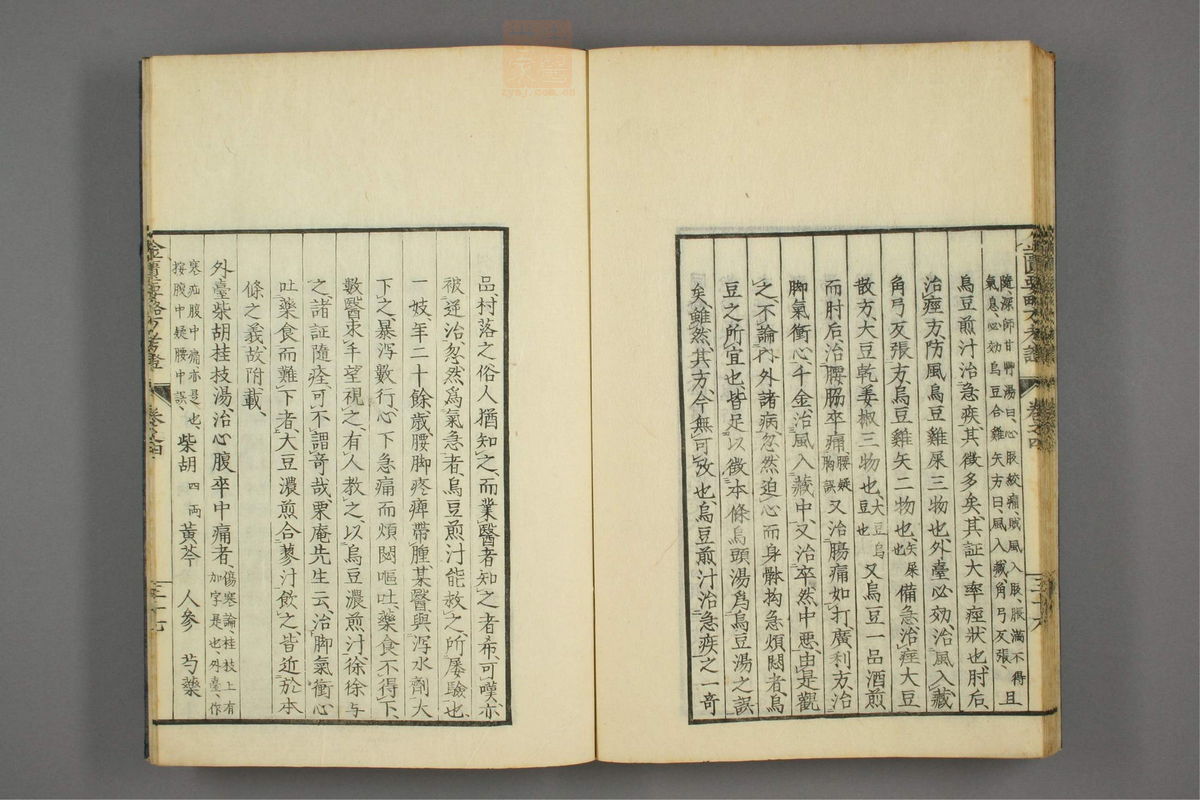 隨、深師甘野湯曰、心腹絞痛、賊風入腹、脹滿不得
氣息必効烏豆合雞矢方曰、風入藏、角弓反張、且
烏豆煎汁治急疾其徵多矣、其証大率痙狀也、肘后、
治痙方、防風烏豆雞屎三物也、外臺必効、治風入藏
角弓反張方、烏豆雞矢二物也、矢屎也備急治痙大豆
散方、大豆乾姜椒三物也、大豆烏豆也又烏豆一品酒煎
而肘后、治腰脇卒痛、腰疑胸誤又治腸痛如打、廣利方治
脚氣衝心、千金治風入藏中、又治卒然中惡、由是觀
之、不論内外諸病忽然迫心而身體拘急煩悶者、烏
豆之所宜也、皆足以徵本條烏頭湯爲烏豆湯之誤
矣、雖然、其方、今無可攷也、烏豆煎汁治急疾之一奇
金匱要略方考證 卷之四 三十六
品村落之俗人猶知之、而業醫者知之者希、可嘆、亦
被逆治、忽然爲氣急者、烏豆煎汁能救之、所屡驗也、
一妓、年二十餘歳腰脚疼痺帶腫、某醫與瀉水劑大
下之、暴瀉數行、心下急痛而煩悶嘔吐、藥食不得下、
數醫束手望視之、有人教之、以烏豆濃煎汁、徐徐与
之諸証隨痊、可不謂奇哉、栗庵先生云、治脚氣衝心
吐藥食而難下者、大豆濃煎合蓼汁飲之、皆近於本
條之義故附載、
外臺柴胡桂枝湯、治心腹卒中痛者、傷寒論、桂枝上有加字是也、外臺、作
寒疝腹中痛、亦是也、按腹中疑腰中誤、柴胡四兩黃芩 人參 芍藥
金匱要略方考證 卷之四 三十七